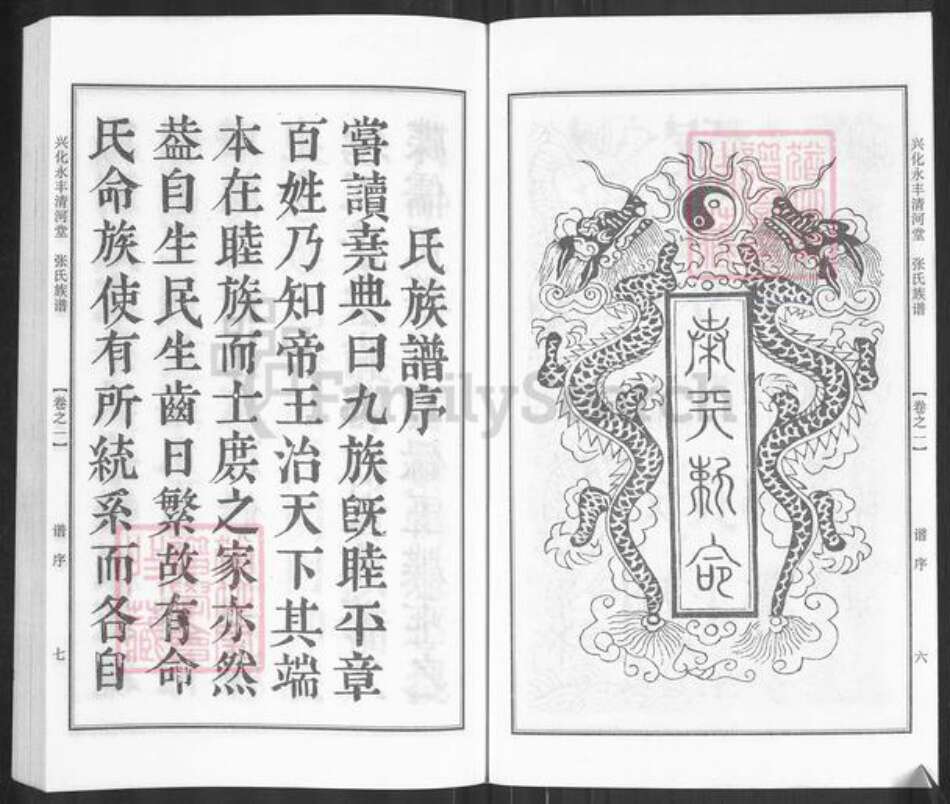 兴化永丰清河堂 张氏族谱 【卷之一】 谱序 六
奉天敕命
氏族譜序
嘗讀堯典曰九族既睦平章
百姓乃知帝王治天下其端
本在睦族而士庶之家亦然
葢自生民生齒日繁故有命
氏命族使有所統系而各自
兴化永丰清河堂 张氏族谱 【卷之一】 谱序 七
FamilySearch